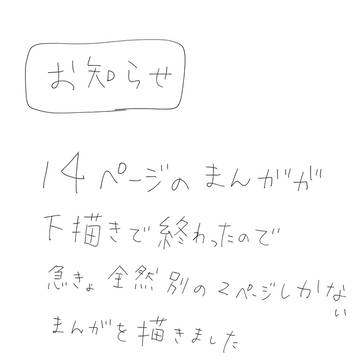 お知らせ
14ページのまんがが
下描きで終わったので
急きょ全然別の2ページしかない
まんがを描きました